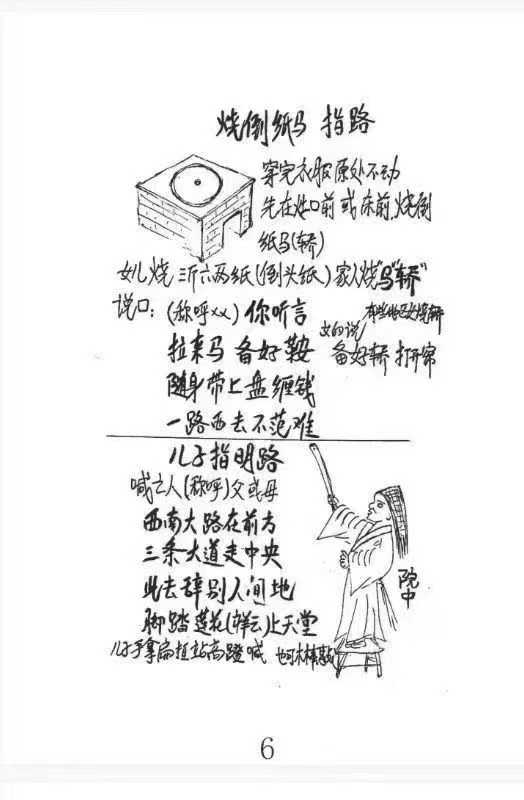 烧倒纸马 指路
穿完衣服原处不动
先在灶口前或床前,烧倒
纸马(轿)
女儿烧 三斤六两纸(倒头纸) 家人烧"马""轿"
说口:(称呼××) 你听言
女的说
拉来马 备好鞍 备好轿 打开帘
随身带上盘缠钱
一路西去不范难
儿子指明路
喊亡人(称呼)父或母
西南大路在前方
三条大道走中央
此去辞别人间地
脚踏莲花(祥云)上天堂
儿子手拿扁担站高蹬喊
院中
6